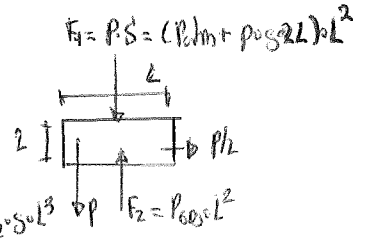 F₁ = P·S = (Patm + ρ·g·2L)·L²
L
2
P/2
·g·L³
P
F₂ = Pgas·L²